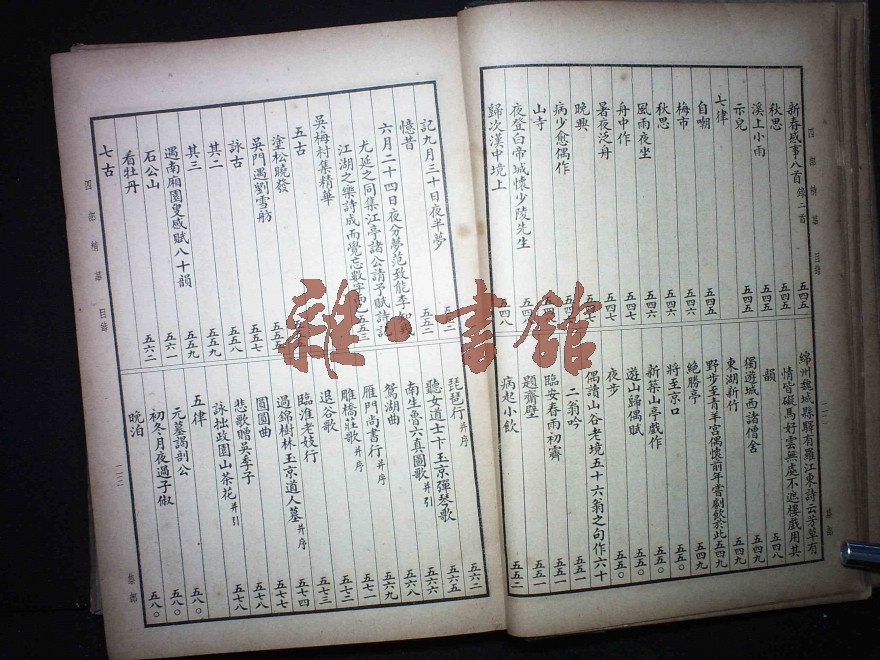 四部精華 目錄
新春感事八首錄二首 五四五
秋思 五四五
溪上小雨 五四五
示兒 五四五
七律
自嘲 五四五
梅市 五四六
秋思 五四六
風雨夜坐 五四六
舟中作 五四七
暑夜泛舟 五四七
晚興
病少愈偶作
山寺
夜登白帝城懷少陵先生
歸次漢中境上 五四八
綿州魏城縣驛有羅江東詩云芳草有
情皆礙馬好雲無處不遮樓戲用其
韻 五四八
獨遊城西諸僧舍 五四九
東湖新竹 五四九
野步至青羊宮偶懷前年嘗劇飲於此 五四九
絶勝亭 五四九
將至京口 五五〇
新築山亭戲作 五五〇
遊山歸偶賦 五五〇
夜步 五五〇
偶讀山谷老境五十六翁之句作六十
二翁吟 五五一
臨安春雨初霽 五五一
題齋壁 五五一
病起小飲 五五二
集部
記九月三十日夜半夢 五五二
憶昔 五五二
六月二十四日夜分夢范致能李知幾
尤延之同集江亭諸公請予賦詩記
江湖之樂詩成而覺忘數字而已 五五三
吳梅村集精華
五古
塗松曉發
吳門遇劉雪舫 五五七
詠古 五五八
其二 五五九
其三 五五九
遇南廂園叟感賦八十韻 五六一
石公山 五六二
看牡丹
七古
琵琶行并序 五六二
聽女道士卞玉京彈琴歌 五六五
南生魯六真圖歌并引 五六六
鴛湖曲 五六八
雁門尚書行并序 五六九
雕橋莊歌并序 五七一
退谷歌 五七二
臨淮老妓行 五七三
過錦樹林玉京道人墓并序 五七四
圓圓曲 五七七
悲歌贈吳季子 五七八
詠拙政園山茶花并引 五七八
五律
元墓謁剖公 五八〇
初冬月夜過子俶 五八〇
晚泊 五八〇
四部精華 目錄
二三
集部
雜·書館